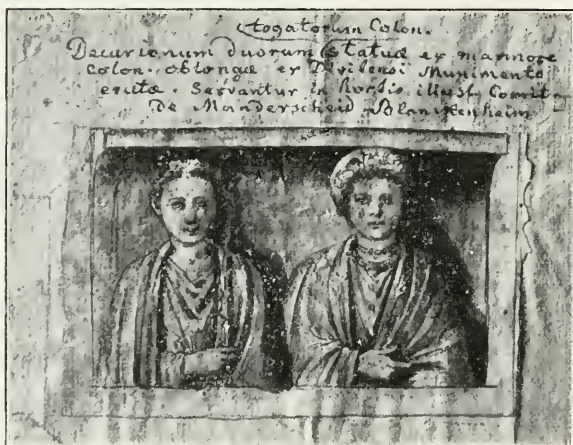 togatorum Colon.
Decurionum duorum statuæ ex marmore
Colon. oblongæ ex Divitensi Munimento
erutæ. Servantur in hortis illust. Comit.
De Manderscheid Blankenheim